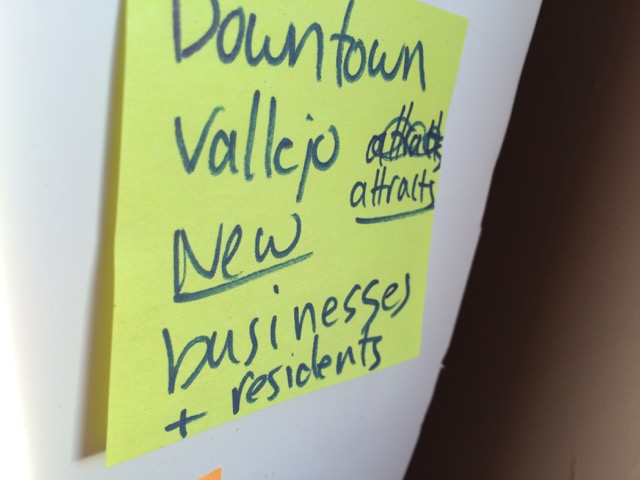 Downtown
Vallejo
attracts
New
businesses
+ residents